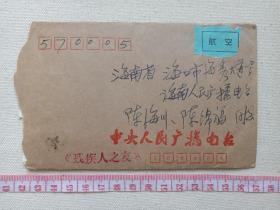 570005
航空
海南省海口市海秀大道
海南人民广播电台
陈海川、陈
中央人民广播电台
《残疾人之友》